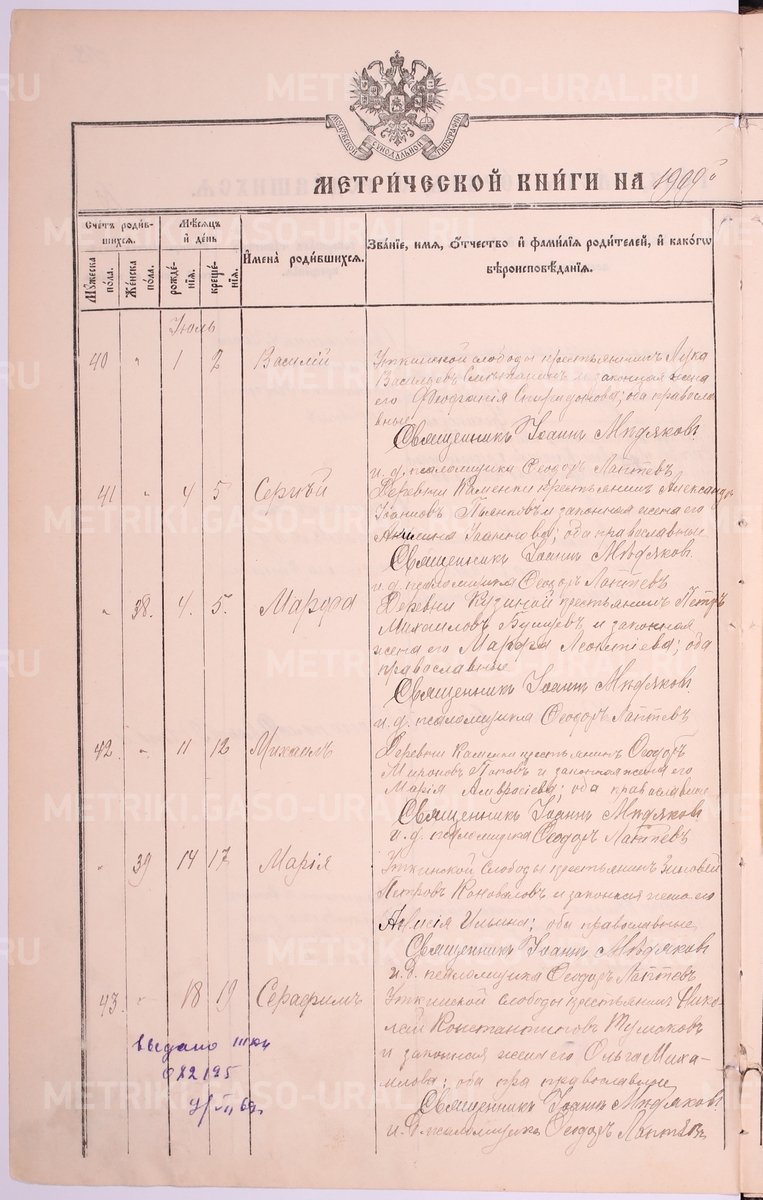 МОСКОВСКОЙ СѴНОДАЛЬНОЙ ТИПОГРАФІИ
МЕТРИ́ЧЕСКОЙ КНИ́ГИ НА 1909 г
Сче́тъ роди́вшихся.
Мѣ́сяцъ и҆ де́нь
И҆мена̀ роди́вшихся.
Зва́нїе, имя, ѻ҆́тчество и҆ фами́лїя роди́телей, и҆ како́гѡ вѣроисповѣ́данїя.
Мꙋ́жеска по́ла.
Же́нска по́ла.
рожде́нїя.
креще́нїя.
Іюль
40 " 1 2 Василій
Уткинской слободы крестьянинъ Лука
Васильевъ и законная жена
его Спиридонова; оба православ
ные
Священникъ Іоаннъ Мѣдяковъ
и. д. псаломщика Ѳеодоръ Лаптевъ
41 " 4 5 Сергѣй
Деревни Каменки крестьянинъ Александръ
Іоанновъ Пьянковъ и законная жена его
Іоаннова; оба православные
Священникъ Іоаннъ Мѣдяковъ
и. д. псаломщика Ѳеодоръ Лаптевъ
" 38. 4. 5. Марѳа
Деревни Кузиной крестьянинъ Петръ
Михаиловъ и законная
жена его Леонтіева; оба
православные
Священникъ Іоаннъ Мѣдяковъ
и. д. псаломщика Ѳеодоръ Лаптевъ
42. " 11 12 Михаилъ
Деревни Каменки крестьянинъ Ѳеодоръ
Мироновъ Поповъ и законная жена его
Марія Амвросіева; оба православные
Священникъ Іоаннъ Мѣдяковъ
и. д. псаломщика Ѳеодоръ Лаптевъ
" 39 14 17 Марія
Уткинской слободы крестьянинъ Зиновей
Петровъ Коноваловъ и законная жена его
Анисія Ильина; оба православные
Священникъ Іоаннъ Мѣдяковъ
и. д. псаломщика Ѳеодоръ Лаптевъ
43. " 18 19 Серафимъ
Уткинской слободы крестьянинъ Нико
лай Константиновъ Тумаковъ
и законная жена его Ольга Миха-
илова; оба пра православные
Священникъ Іоаннъ Мѣдяковъ
и. д. псаломщика Ѳеодоръ Лаптевъ
выдано
022195
METRIKI.GASO-URAL.RU